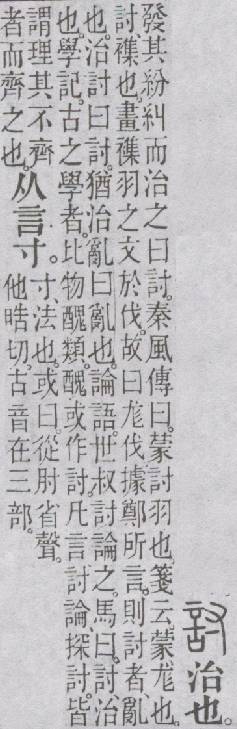 討 治也。
發其紛糾而治之曰討。秦風傳曰。蒙討羽也。箋云。蒙尨也。
討、襍也。畫襍羽之文於伐。故曰尨伐。據鄭所言。則討者、亂
也。治討曰討。猶治亂曰亂也。論語。世叔討論之。馬曰。討、治
也。學記。古之學者。比物醜類。醜或作討。凡言討論、探討。皆
謂理其不齊
者而齊之也。
从言寸。
寸、法也。或曰。從肘省聲。
他晧切。古音在三部。